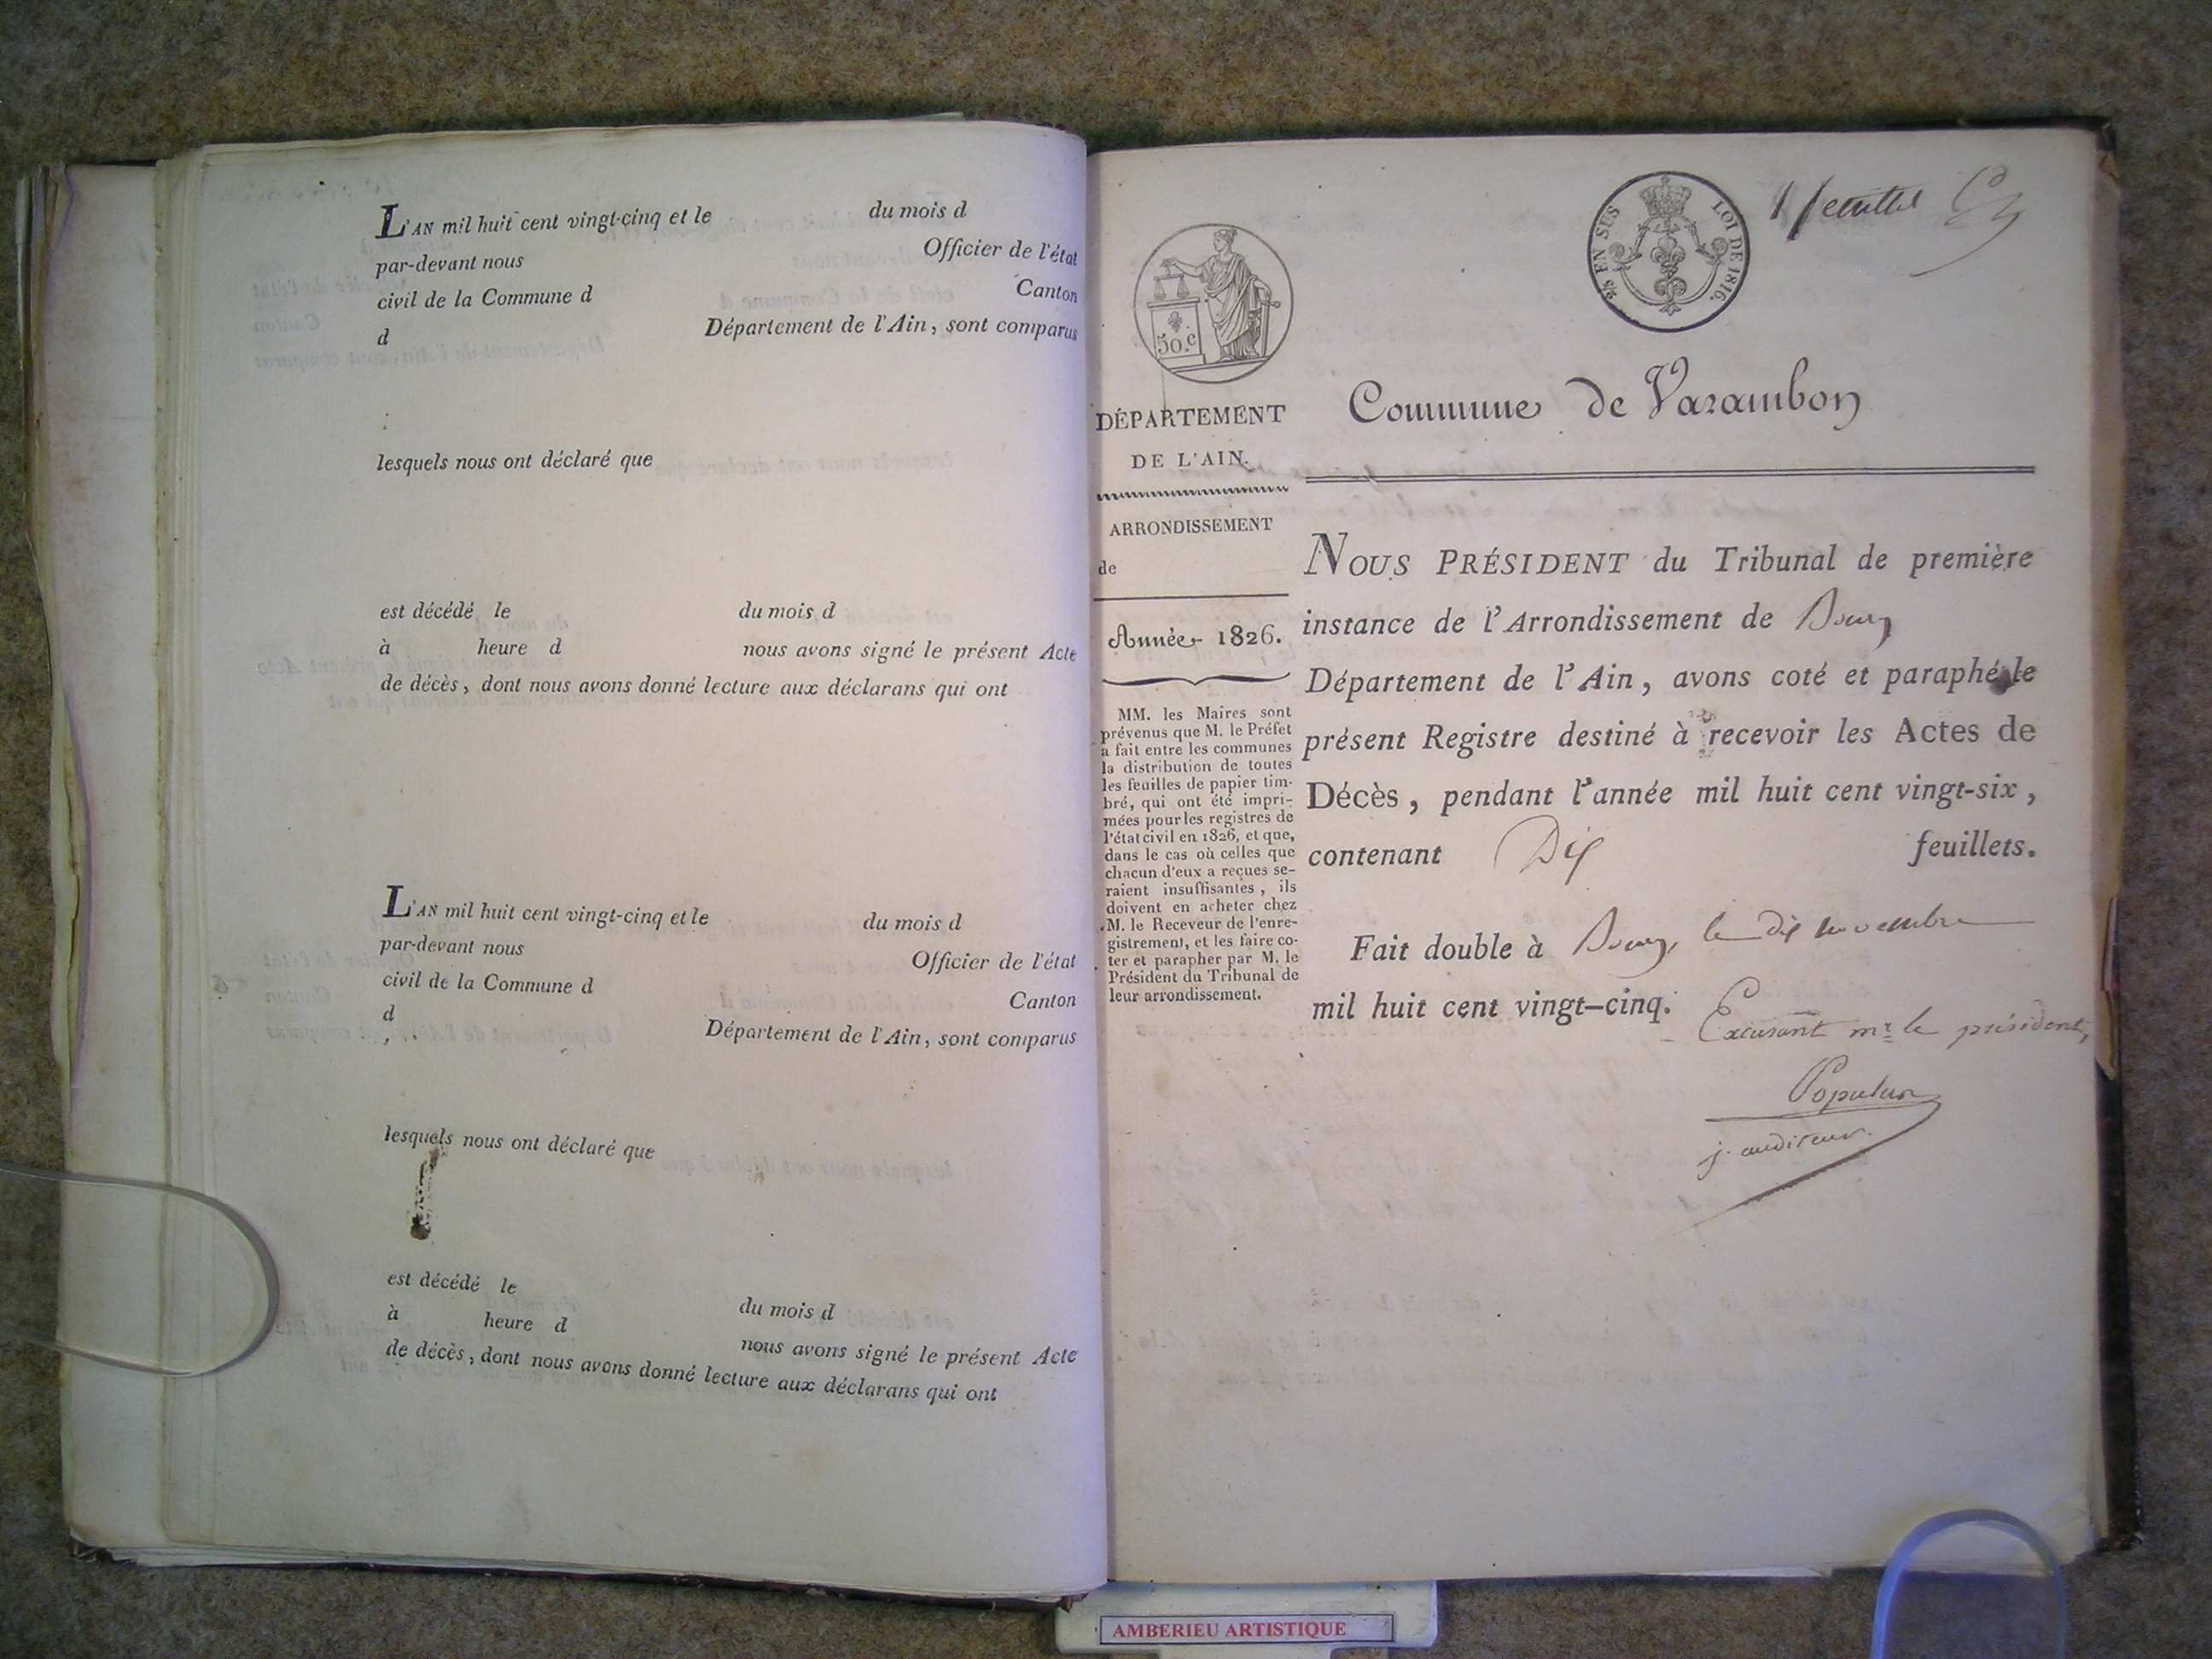 L'AN mil huit cent vingt-cinq et le du mois d
par-devant nous Officier de l'état
civil de la Commune d Canton
d Département de l'Ain, sont comparus
lesquels nous ont déclaré que
est décédé le du mois d
à heure d nous avons signé le présent Acte
de décès, dont nous avons donné lecture aux déclarans qui ont
L'AN mil huit cent vingt-cinq et le du mois d
par-devant nous Officier de l'état
civil de la Commune d Canton
d Département de l'Ain, sont comparus
lesquels nous ont déclaré que
est décédé le du mois d
à heure d nous avons signé le présent Acte
de décès, dont nous avons donné lecture aux déclarans qui ont
50.c
25 EN SUS LOI DE 1816.
1 feuillet
DÉPARTEMENT
DE L'AIN.
ARRONDISSEMENT
de
Année 1826.
MM. les Maires sont
prévenus que M. le Préfet
a fait entre les communes
la distribution de toutes
les feuilles de papier tim-
bré, qui ont été impri-
mées pour les registres de
l'état civil en 1826, et que,
dans le cas où celles que
chacun d'eux a reçues se-
raient insuffisantes, ils
doivent en acheter chez
M. le Receveur de l'enre-
gistrement, et les faire co-
ter et parapher par M. le
Président du Tribunal de
leur arrondissement.
Commune de Varambon
NOUS PRÉSIDENT du Tribunal de première
instance de l'Arrondissement de Bourg
Département de l'Ain, avons coté et paraphé le
présent Registre destiné à recevoir les Actes de
Décès, pendant l'année mil huit cent vingt-six,
contenant Dix feuillets.
Fait double à Bourg, le dix novembre
mil huit cent vingt-cinq.
Excusant mr le président,
Populus
j. auditeur.
AMBERIEU ARTISTIQUE